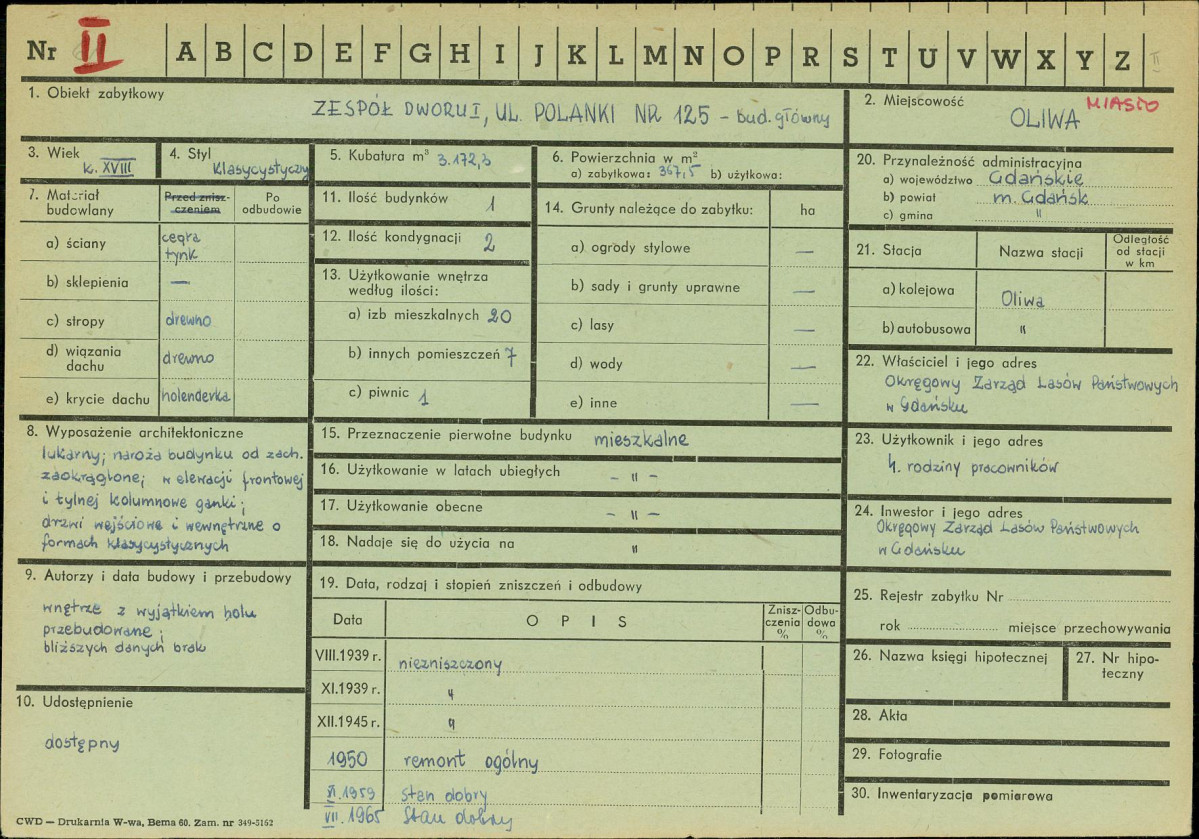 Nr II A B C D E F G H I J K L M N O P R S T U V W X Y Z II
1. Obiekt zabytkowy
ZESPÓŁ DWORU I, UL. POLANKI NR 125 – bud. główny
2. Miejscowość
MIASTO
OLIWA
3. Wiek
k. XVIII
4. Styl
Klasycystyczny
5. Kubatura m³ 3.172,3
6. Powierzchnia w m²
a) zabytkowa: 367,5 b) użytkowa:
7. Materiał budowlany
Przed zniszczeniem
Po odbudowie
a) ściany
cegła
tynk
b) sklepienia —
c) stropy drewno
d) wiązania dachu drewno
e) krycie dachu holenderka
11. Ilość budynków 1
12. Ilość kondygnacji 2
13. Użytkowanie wnętrza
według ilości:
a) izb mieszkalnych 20
b) innych pomieszczeń 7
c) piwnic 1
14. Grunty należące do zabytku: ha
a) ogrody stylowe —
b) sady i grunty uprawne —
c) lasy —
d) wody —
e) inne —
20. Przynależność administracyjna
a) województwo Gdańskie
b) powiat m. Gdańsk
c) gmina "
21. Stacja
Nazwa stacji
Odległość
od stacji
w km
a) kolejowa Oliwa
b) autobusowa "
22. Właściciel i jego adres
Okręgowy Zarząd Lasów Państwowych
w Gdańsku
8. Wyposażenie architektoniczne
lukarny; naroża budynku od zach.
zaokrąglone; w elewacji frontowej
i tylnej kolumnowe ganki;
drzwi wejściowe i wewnętrzne o
formach klasycystycznych
15. Przeznaczenie pierwotne budynku mieszkalne
16. Użytkowanie w latach ubiegłych – " –
17. Użytkowanie obecne – " –
18. Nadaje się do użycia na "
23. Użytkownik i jego adres
4. rodziny pracowników
24. Inwestor i jego adres
Okręgowy Zarząd Lasów Państwowych
w Gdańsku
9. Autorzy i data budowy i przebudowy
wnętrze z wyjątkiem holu
przebudowane;
bliższych danych brak
10. Udostępnienie
dostępny
19. Data, rodzaj i stopień zniszczeń i odbudowy
Data
O P I S
Zniszczenia %
Odbudowa %
VIII.1939 r. niezniszczony
XI.1939 r. "
XII.1945 r. "
1950 remont ogólny
XI.1959 stan dobry
VII.1965 Stan dobry
25. Rejestr zabytku Nr
rok miejsce przechowywania
26. Nazwa księgi hipotecznej
27. Nr hipo-
teczny
28. Akta
29. Fotografie
30. Inwentaryzacja pomiarowa
CWD — Drukarnia W-wa, Bema 60. Zam. nr 349-5162